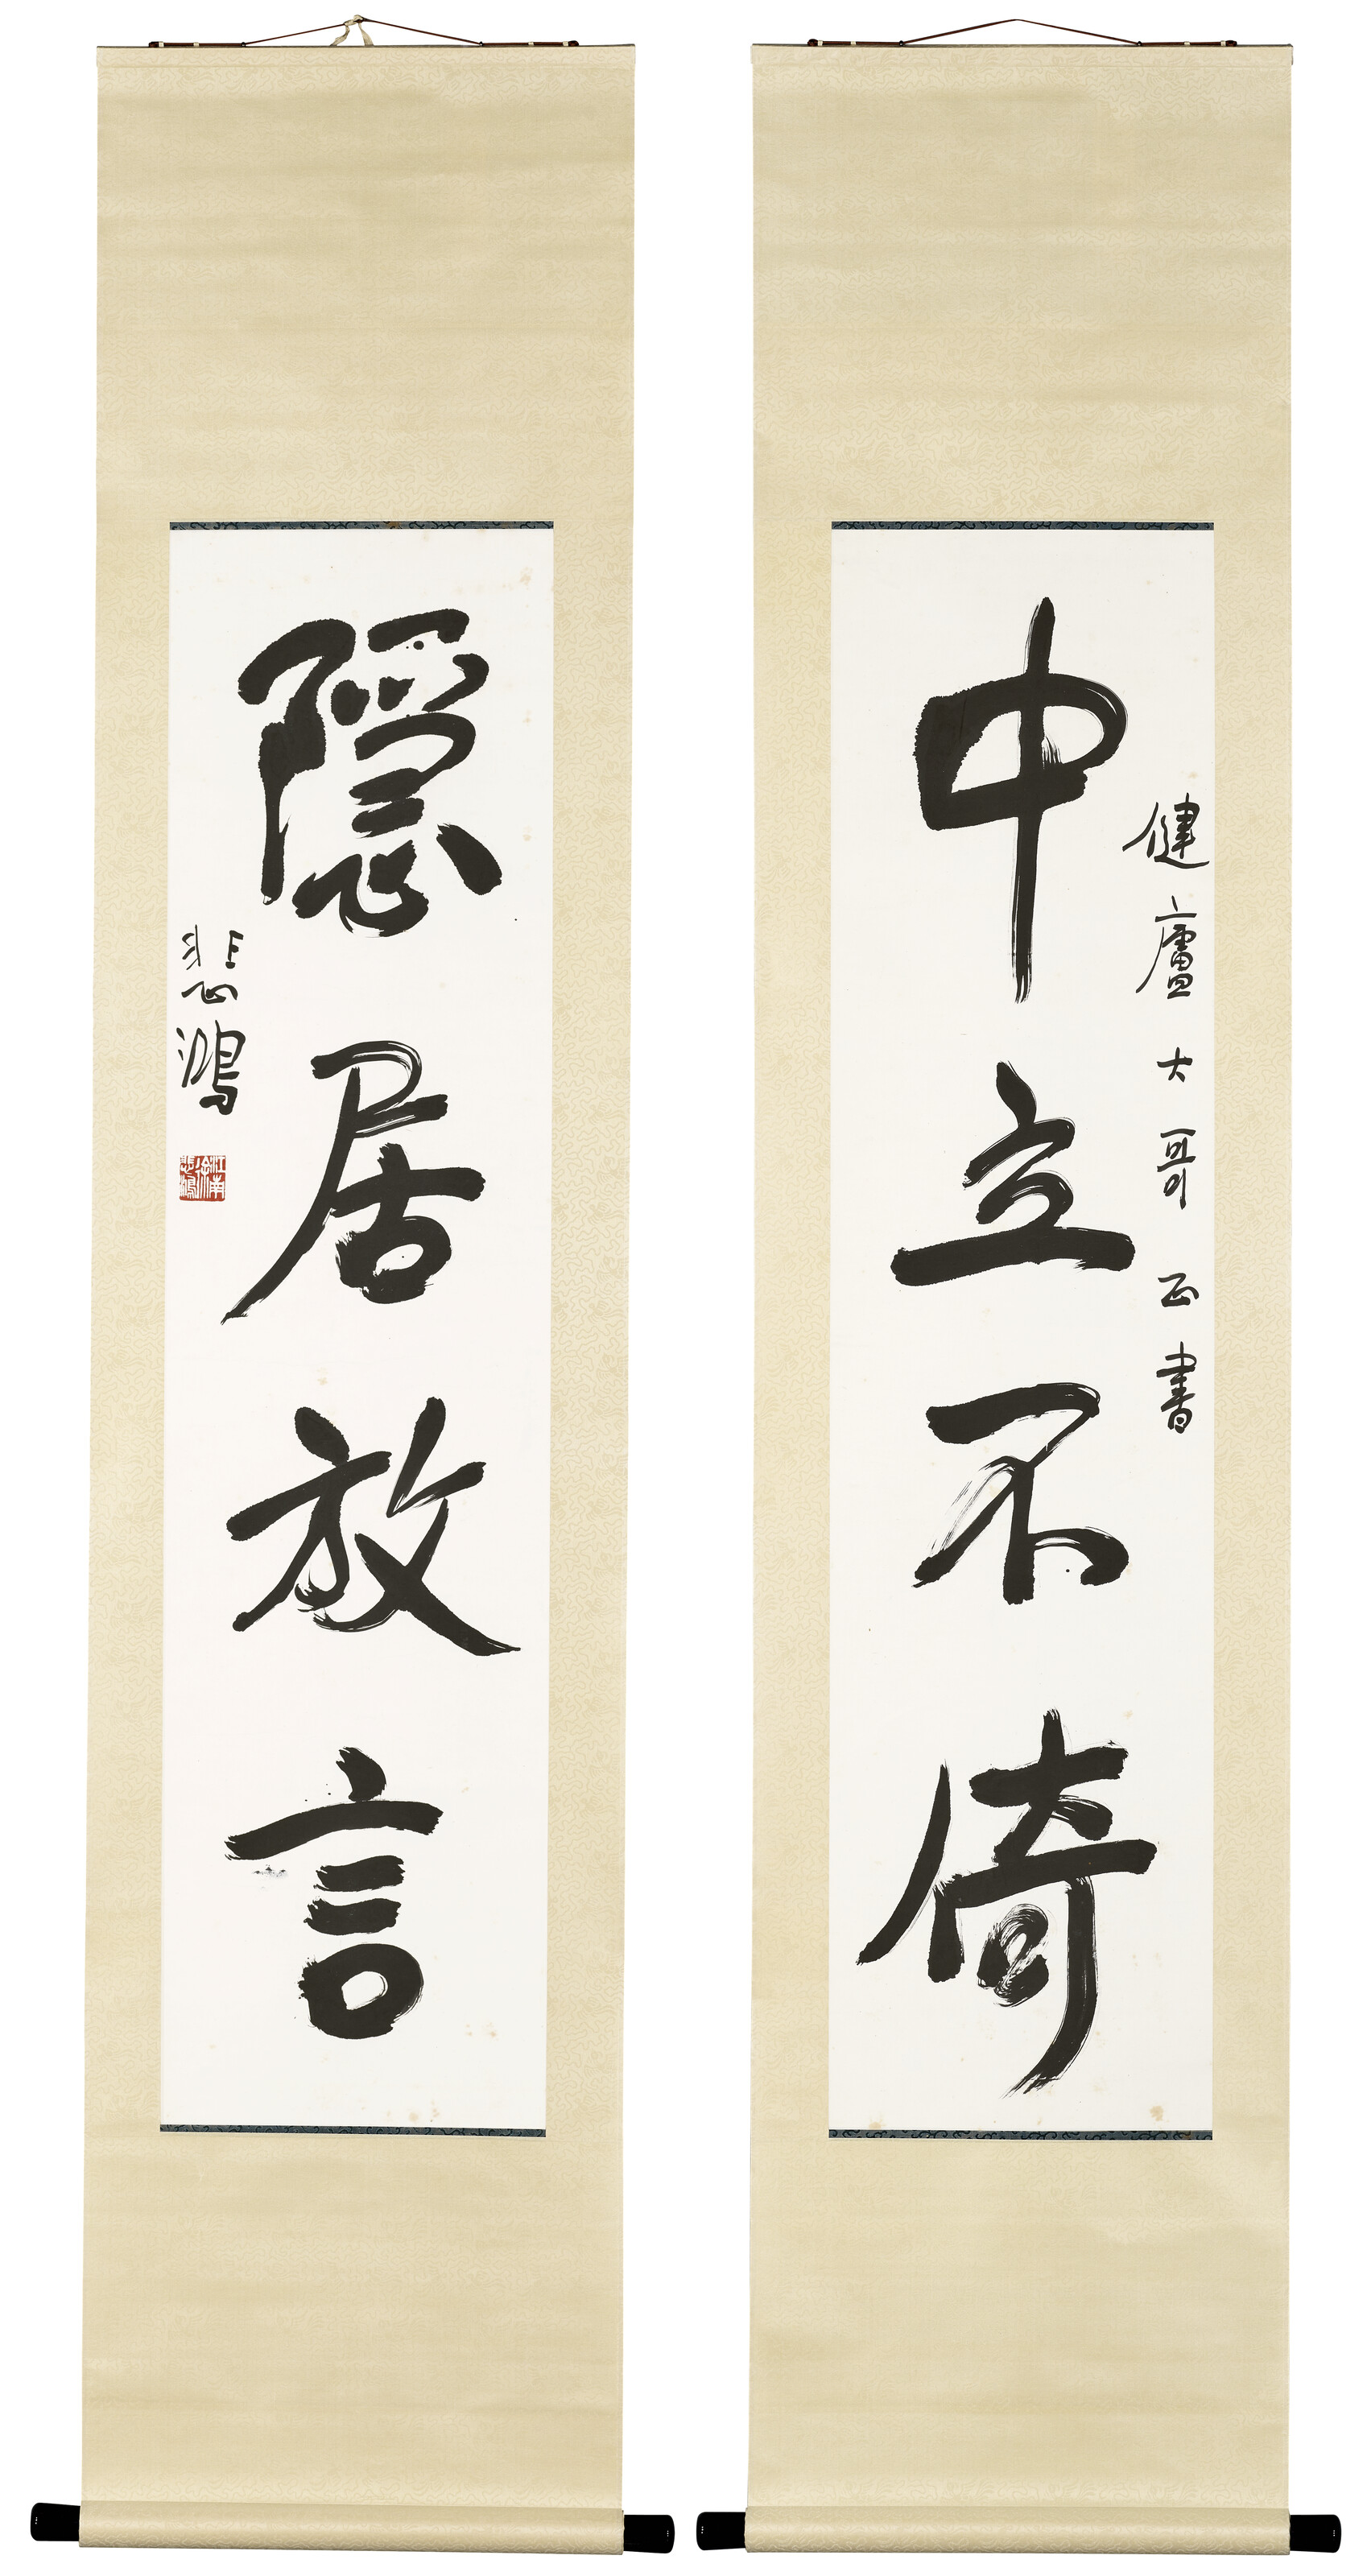 中立不倚
健廬大哥正書
隱居放言
悲鴻
江南徐悲鴻